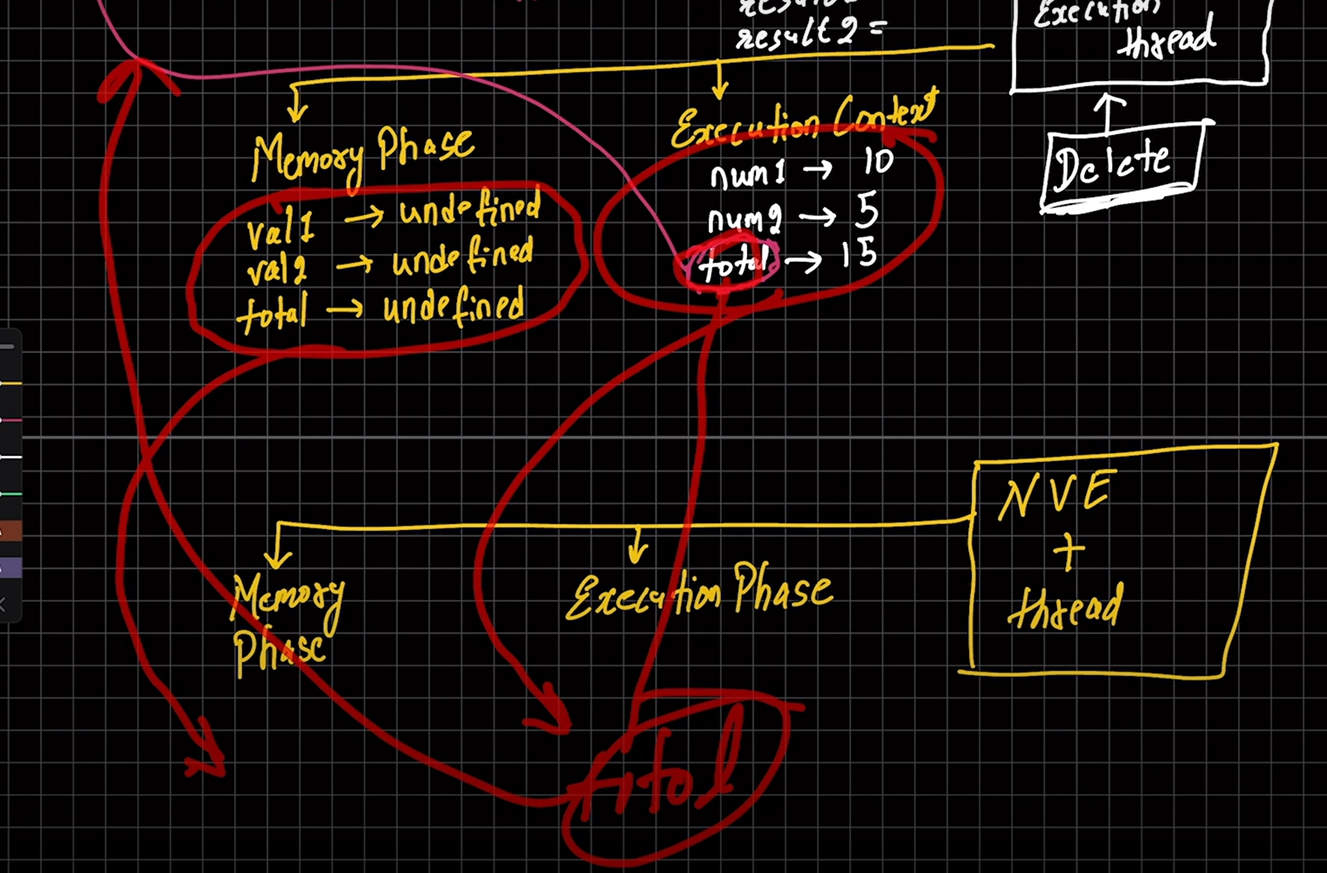 result 2 =
Execution
thread
Memory Phase
val1 → undefined
val2 → undefined
total → undefined
Execution Context
num1 → 10
num2 → 5
total → 15
Delete
NVE
+
thread
Memory
Phase
Execution Phase
total